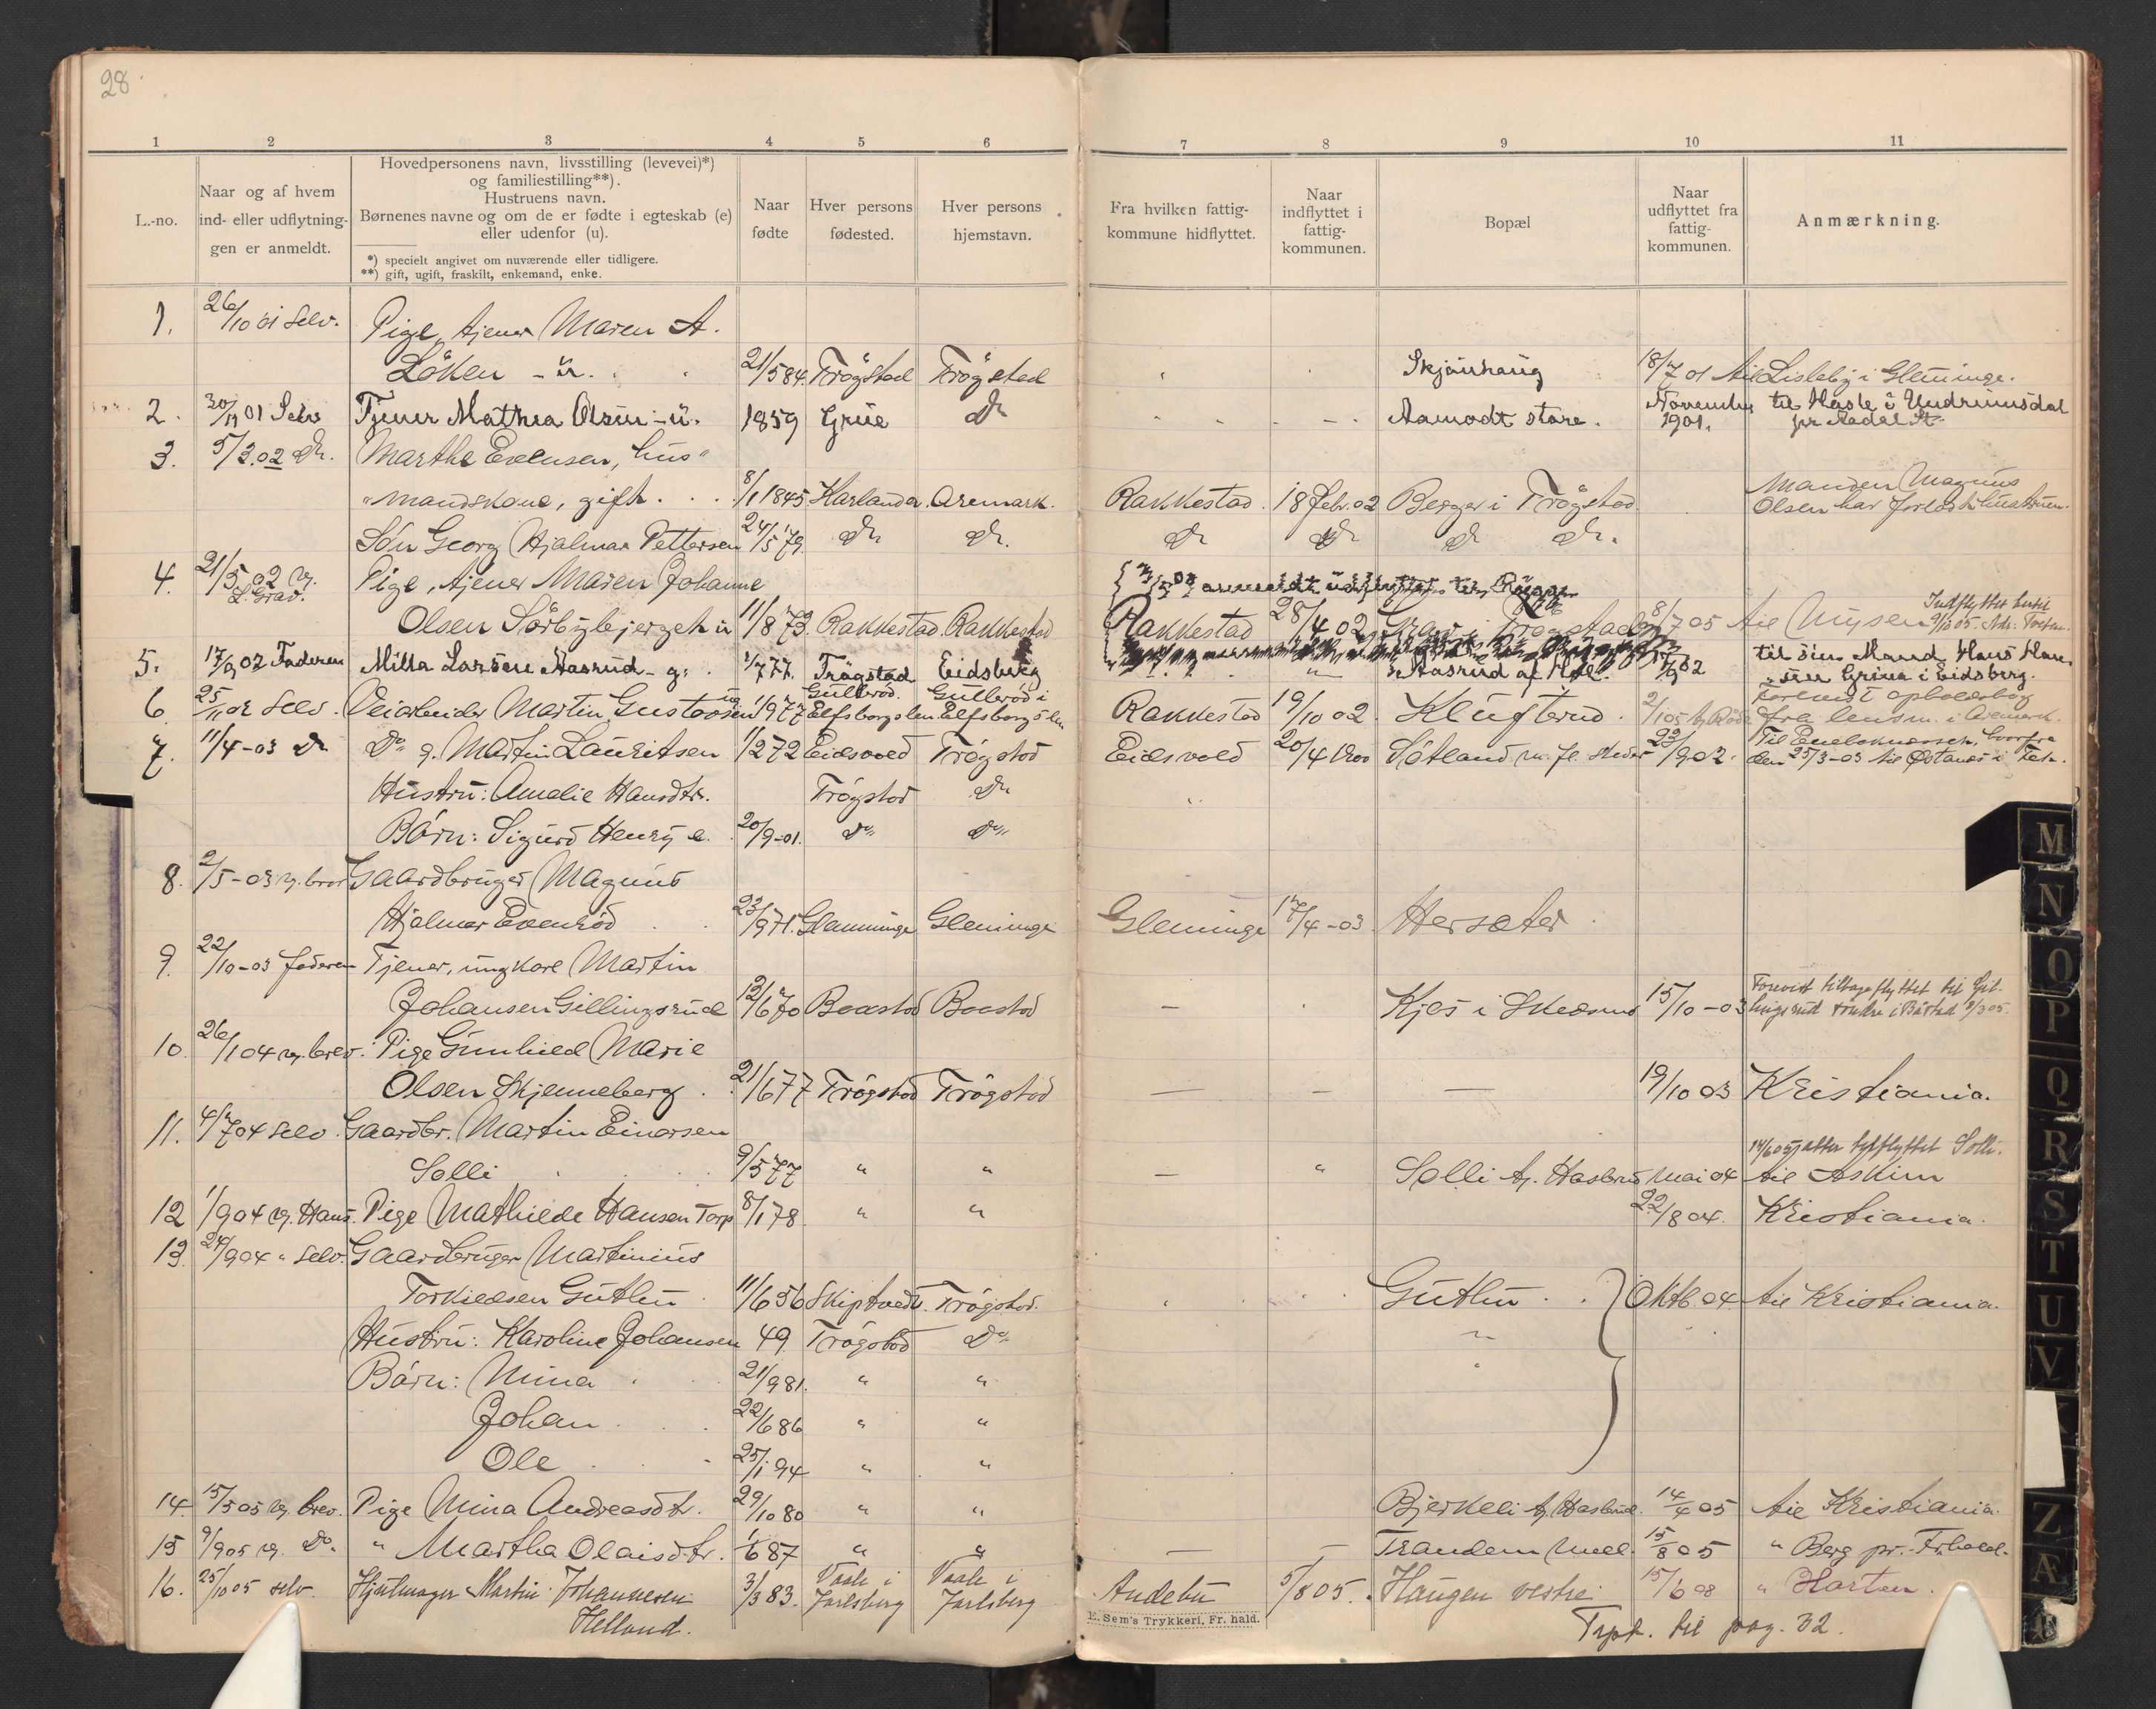 28
1 2 3 4 5 6 7 8 9 10 11
L.-no.
Naar og af hvem
ind- eller udflytning-
gen er anmeldt.
Hovedpersonens navn, livsstilling (levevei)*)
og familiestilling**).
Hustruens navn.
Børnenes navne og om de er fødte i egteskab (e)
eller udenfor (u).
*) specielt angivet om nuværende eller tidligere.
**) gift, ugift, fraskilt, enkemand, enke.
Naar
fødte
Hver persons
fødested.
Hver persons
hjemstavn.
Fra hvilken fattig-
kommune hidflyttet.
Naar
indflyttet i
fattig-
kommunen.
Bopæl
Naar
udflyttet fra
fattig-
kommunen.
Anmærkning.
1. 26/10 01 Selv. Pige, tjener Maren A.
Löken - u. 21/5 84 Trögstad Trögstad Skjönhaug 18/7 01 til Lisleby i Glemminge.
2. 30/11 01 Selv Tjener Mathea Olsen - u. 1859 Grue Do Aamodt store. November 1901. til
3. 5/3.02 Do. Marthe Evensen, hus"
"mandskone, gift. 8/1 1845 Aremark. Rakkestad 18 Febr. 02 Berger i Trögstad Manden Magnus
Olsen har forladt hustruen.
Sön Georg Hjalmar Pettersen 24/5 79. Do Do. Do Do Do Do.
4. 21/5 02 Pige, tjener Maren Johanne
L. Grav. anmeldt udflyttet til
Olsen Sörbybjerget u 11/8 73. Rakkestad. Rakkestad Rakkestad 28/4 02 Grav i Trögstad 8/7 05 til Mysen Indflyttet hertil
5. 17/9 02 Faderen Milla Larsen Aasrud - g. 1/7 77. Trögstad Eidsberg Aasrud af til sin Mand Hans Han-
sen Grina i Eidsberg.
6. 25/11 02 Selv. Veiarbeider Martin Gustavsen ug 1/9 77 Gulleröd Elfsborgslen Gulleröd i Elfsborgslen Rakkestad 19/10 02. Klufterud. Forevist opholdsbog
fra lensm. i Aremark.
7. 11/4-03 Do Do g. Martin Lauritsen 1/2 72 Eidsvold Trögstad Eidsvold 20/4 1900 Sötland m. fl. steder 23/9 02. Til Enebaknesset, hvorfra
den 25/3-03 til Østanes i Fet.
Hustru: Amalie Hansdtr. Trögstad Do
Börn: Sigurd Henry e. 20/9-01. Do Do
8. 2/5-03 brev Gaardbruger Magnus
Hjalmar Evenröd 23/9 71. Glemminge Glemminge Glemminge 17/4-03 Hersæter
9. 22/10-03 faderen Tjener, ungkarl Martin
Johansen Gillingsrud 12/6 70 Baastad Baastad — Kjos i Skedsmo 15/10-03 Forevist tilbageflyttet til Gil-
lingsrud söndre i Båstad 8/3 05.
10. 26/1 04 brev. Pige Gunhild Marie
Olsen Skjenneberg. 21/6 77 Trögstad Trögstad — — — 19/10 03 Kristiania.
11. 4/7 04 selv. Gaardbr. Martin Einarsen
Solli 9/5 77 " " — " Solli Mai 04 til Askim
14/6 05 atter tilflyttet Solli.
12 1/9 04 Hans. Pige Mathilde Hansen Torp 8/1 78 " " 22/8 04. Kristiania.
13. 24/9 04 " selv. Gaardbruger Martinius
Torkildsen Guthu 11/6 56 Skiptvedt. Trögstad. Guthu Oktb. 04 til Kristiania.
Hustru: Karoline Johansen 49. Trögstad Do "
Börn: Mina 21/9 81. " "
Johan 22/6 86 " "
Ole 25/1 94 " "
14. 15/5 05 brev. Pige Mina Andreasdtr. 29/10 80 " " Bjerkeli 14/4 05 til Kristiania.
15 9/9 05 Do. " Martha Olaisdtr. 1/6 87 " " — — Trandem 15/8 05 " Berg pr. Frhald.
16. 25/10 05 selv Hjulmager Martin Johannesen 3/3 83. Vaale i Jarlsberg Vaale i Jarlsberg Andebu 5/8 05. Haugen vestre 15/6 08 " Horten.
Helland.
E. Sem's Trykkeri, Fr. hald.
Trpt. til pag. 32.
M
N
O
P
Q
R
S
T
U
V
Z
Æ